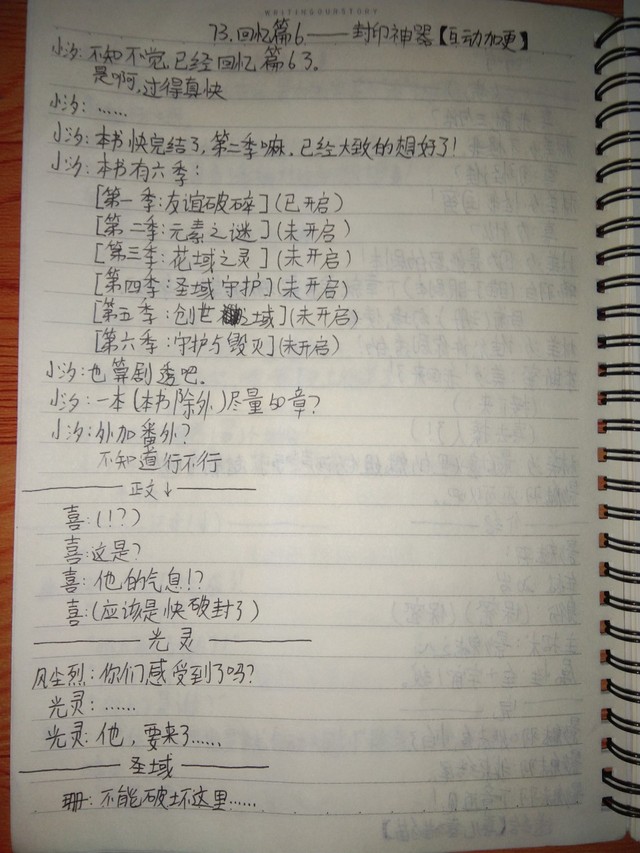 WRITINGOURSTORY
73.回忆篇6——封印神器【互动加更】
小汐:不知不觉,已经回忆篇63.
是啊,过得真快
小汐:……
小汐:本书快完结了,第二季嘛.已经大致的想好了!
小汐:本书有六季:
[第一季:友谊破碎](已开启)
[第二季:元素之谜](未开启)
[第三季:花域之灵](未开启)
[第四季:圣域守护](未开启)
[第五季:创世之域](未开启)
[第六季:守护与毁灭](未开启)
小汐:也算剧透吧.
小汐:一本(本书除外)尽量80章?
小汐:外加番外?
不知道行不行
正文↓
喜:(!?)
喜:这是?
喜:他的气息!?
喜:(应该是快破封了)
光灵
风尘烈:你们感受到了吗?
光灵:……
光灵:他,要来了……
圣域
珊:不能破坏这里……